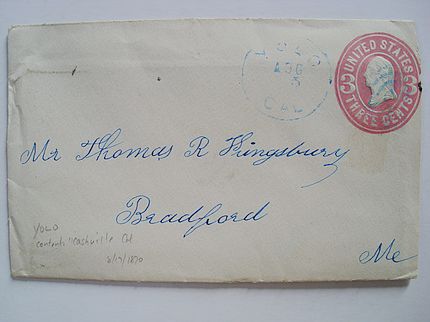 YOLO
AUG
5
CAL
UNITED STATES
THREE CENTS
Mr Thomas R Kingsbury
Bradford
Me
YOLO
contents "Cashville Cal